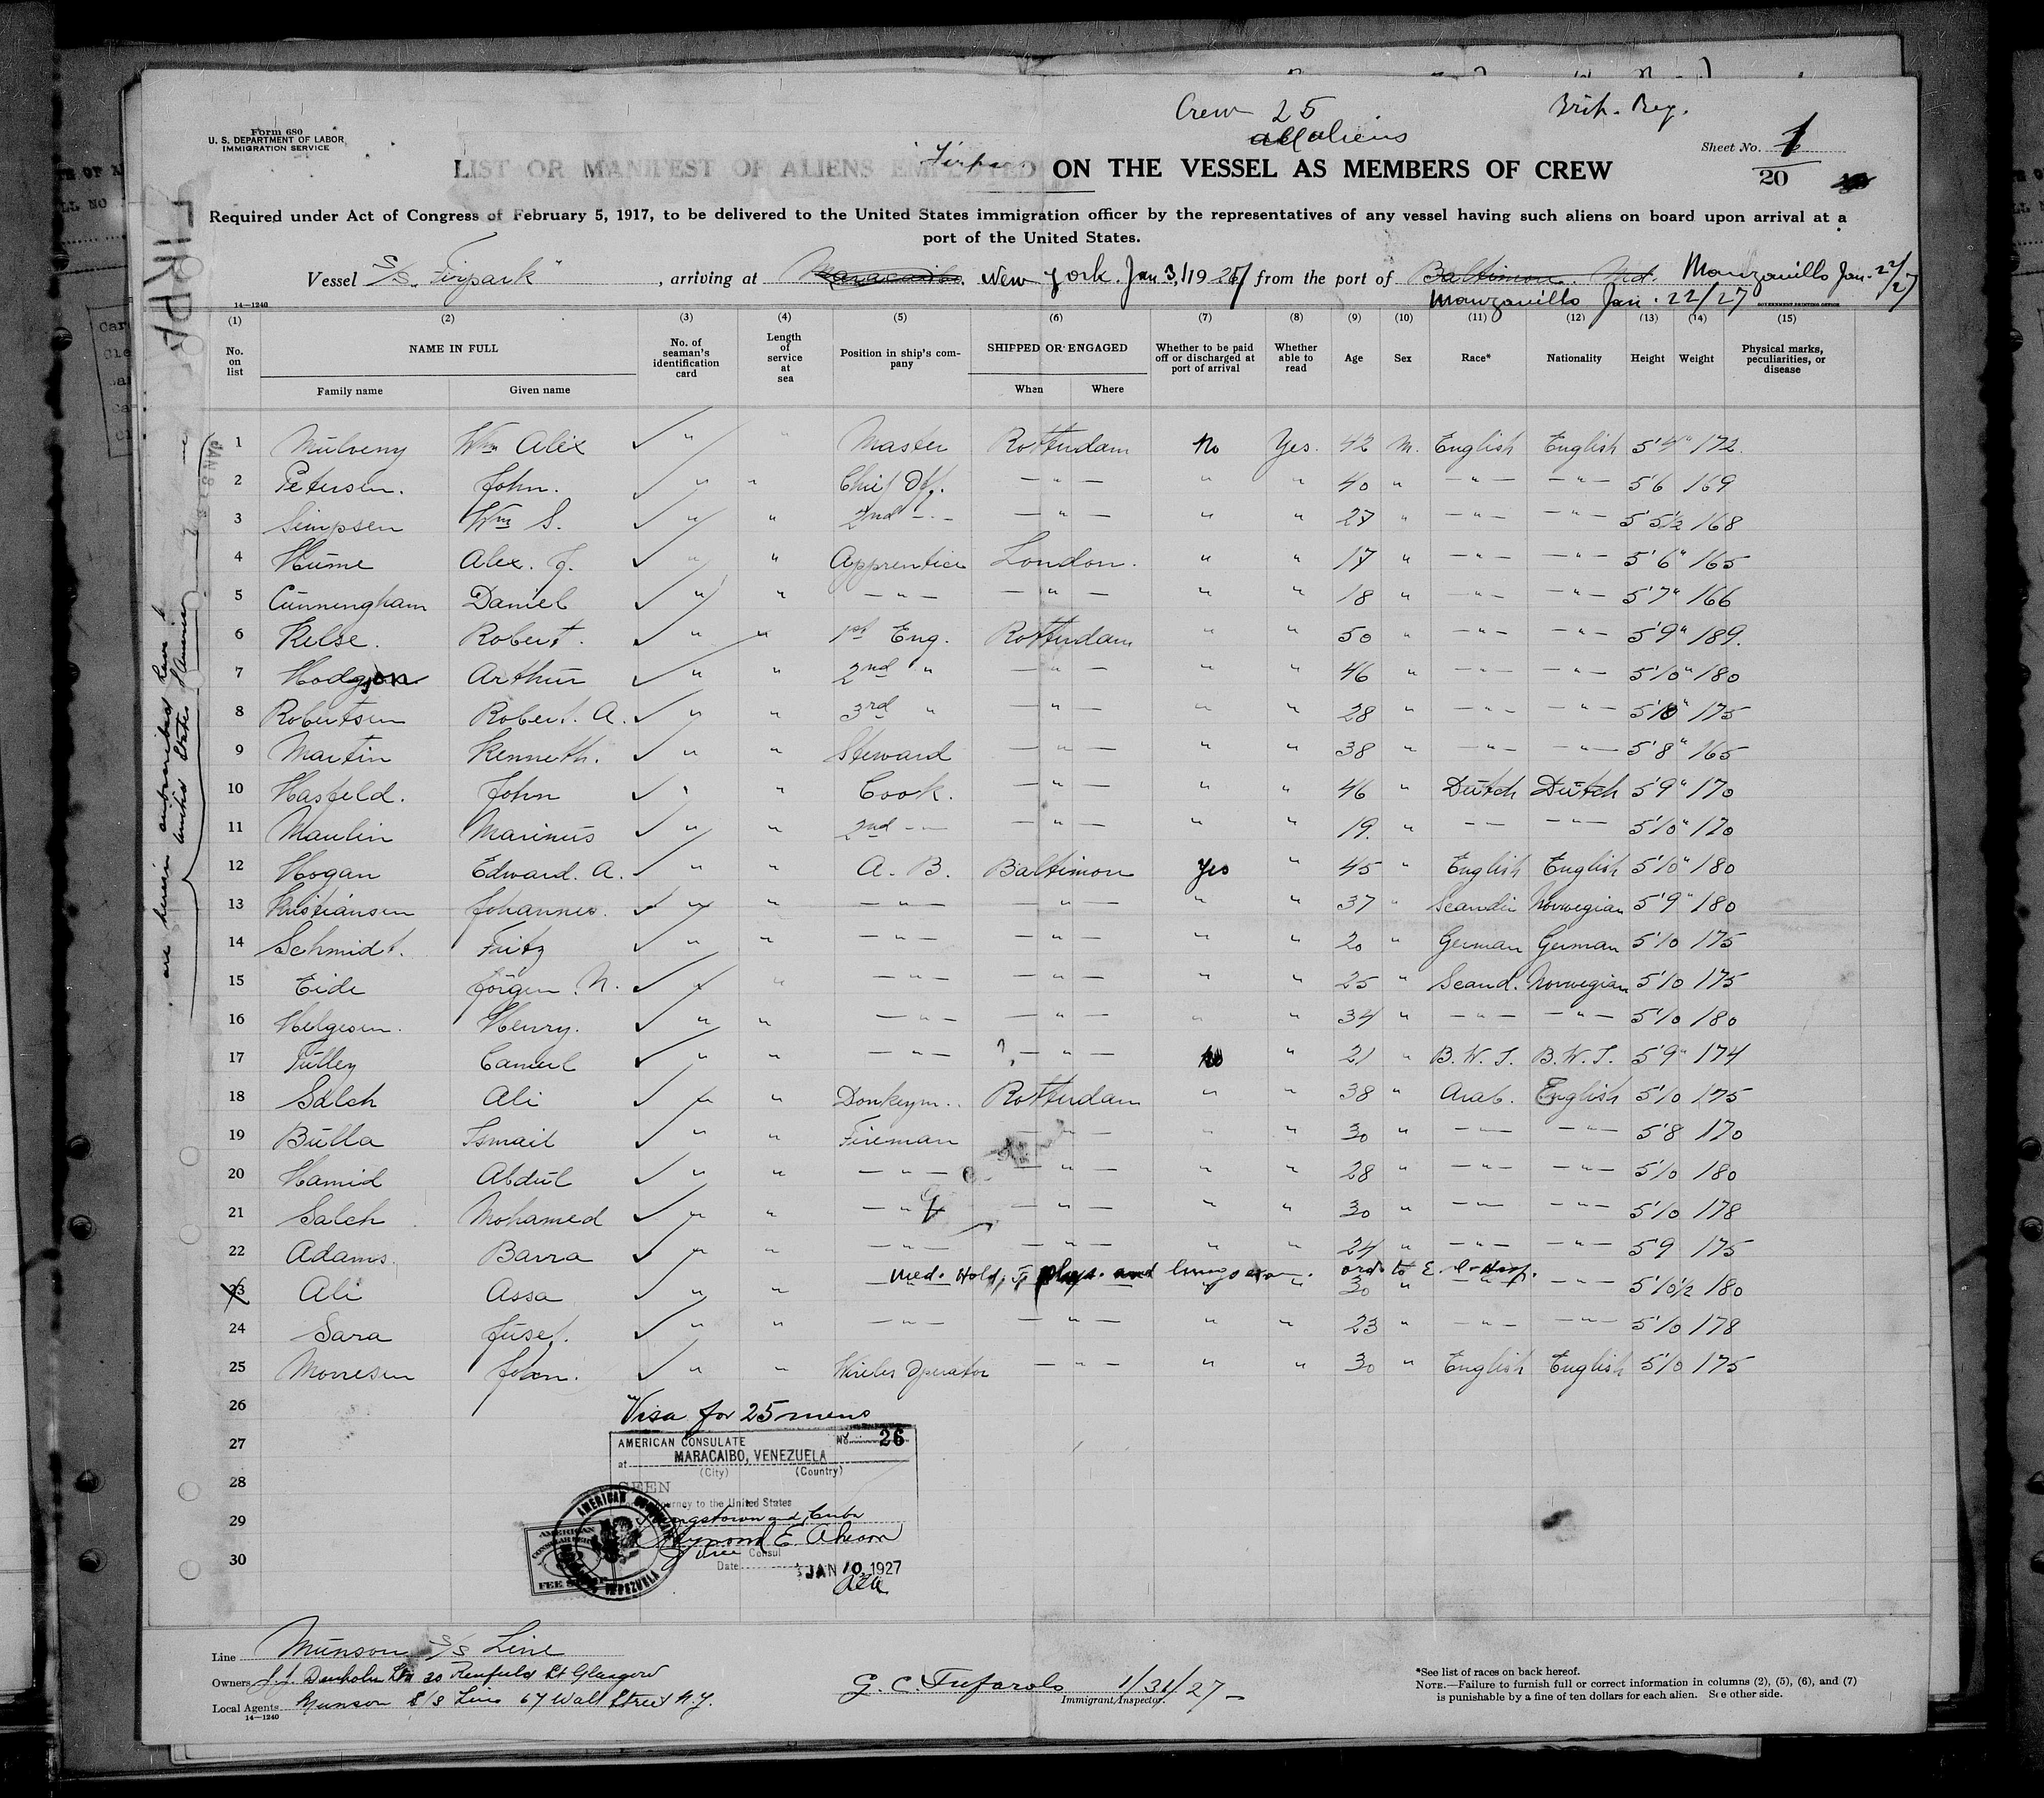 Crew 25
all aliens
Brit. Reg.
Form 680
U. S. DEPARTMENT OF LABOR
IMMIGRATION SERVICE
Sheet No. 1
20
LIST OR MANIFEST OF ALIENS EMPLOYED ON THE VESSEL AS MEMBERS OF CREW
Required under Act of Congress of February 5, 1917, to be delivered to the United States immigration officer by the representatives of any vessel having such aliens on board upon arrival at a
port of the United States.
Vessel S/S. "Firpark" , arriving at Maracaibo. New York. Jan 31, 1927 from the port of Baltimore. Md. Manzanillo Jan. 22/27
Manzanillo Jan. 22/27
14—1240 GOVERNMENT PRINTING OFFICE
(1) (2) (3) (4) (5) (6) (7) (8) (9) (10) (11) (12) (13) (14) (15)
No. on list NAME IN FULL No. of seaman's identification card Length of service at sea Position in ship's company SHIPPED OR ENGAGED Whether to be paid off or discharged at port of arrival Whether able to read Age Sex Race* Nationality Height Weight Physical marks, peculiarities, or disease
Family name Given name When Where
1 Mulveny Wm Alex ✓ " " Master Rotterdam No Yes. 42 M. English English 5'4" 172.
2 Petersen. John. ✓ " " Chief Off. — " — " " 40 " — " — — " — 5'6 169
3 Simpsen Wm S. ✓ " " 2nd — " — — " — " " 27 " — " — — " — 5'5½ 168
4 Hume Alex. J. ✓ " " Apprentice London. " " 17 " — " — — " — 5'6" 165
5 Cunningham Daniel ✓ " " — " — — " — " " 18 " — " — — " — 5'7" 166
6 Kelse. Robert. ✓ " " 1st Eng. Rotterdam " " 50 " — " — — " — 5'9" 189.
7 Hodgson Arthur ✓ " " 2nd " — " — " " 46 " — " — — " — 5'10" 180
8 Robertsen Robert. A. ✓ " " 3rd " — " — " " 28 " — " — — " — 5'10" 175
9 Martin Kenneth. ✓ " " Steward — " — " " 38 " — " — — " — 5'8" 165
10 Hasfeld. John ✓ " " Cook. — " — " " 46 " Dutch Dutch 5'9" 170
11 Maulin Marinus ✓ " " 2nd — " — — " — " " 19. " — " — — " — 5'10" 170
12 Hogan Edward. A. ✓ " " A. B. Baltimore Yes " 45 " English English 5'10" 180
13 Kristiansen Johannes. ✓ " " — " — — " — " " 37 " Scandi Norwegian 5'9" 180
14 Schmidt. Fritz ✓ " " — " — — " — " " 20 " German German 5'10 175
15 Eide Jörgen. N. ✓ " " — " — — " — " " 25 " Scand. Norwegian 5'10 175
16 Helgesen. Henry. ✓ " " — " — — " — " " 34 " — " — — " — 5'10 180
17 Tulley Camul ✓ " " — " — ? — " — No " 21 " B. W. I. B. W. I. 5'9" 174
18 Saleh Ali ✓ " " Donkeym. Rotterdam " " 38 " Arab. English 5'10 175
19 Bulla Ismail ✓ " " Fireman — " — " " 30 " — " — — " — 5'8 170
20 Hamid Abdul ✓ " " — " — — " — " " 28 " — " — — " — 5'10 180
21 Saleh Mohamed ✓ " " — " — — " — " " 30 " — " — — " — 5'10 178
22 Adams. Barra ✓ " " — " — — " — " " 24 " — " — — " — 5'9 175
Med. Hold, phys. and lungs exam. ord. to E. I. Hosp.
23 Ali Assa ✓ " " " 30 " — " — — " — 5'10½ 180
24 Sara Jusef. ✓ " " — " — — " — " " 23 " — " — — " — 5'10 178
25 Morresen John. ✓ " " Wireles Operator — " — " " 30 " English English 5'10 175
26
27
28
29
30
Visa for 25 mens
AMERICAN CONSULATE No. 26
at MARACAIBO, VENEZUELA
(City) (Country)
SEEN
journey to the United States
Vice Consul
Date JAN 10, 1927
AMERICAN
FEE STAMP
VENEZUELA
FIRPARK
are herein authorized
United States
Line Munson S/S Line
Owners J. J. Denholm Ltd 20 Renfield St Glasgow
Local Agents Munson S/S Line 67 Wall Street N.Y.
14—1240
G. C. Tufarolo 1/31/27
Immigrant Inspector.
*See list of races on back hereof.
NOTE.—Failure to furnish full or correct information in columns (2), (5), (6), and (7)
is punishable by a fine of ten dollars for each alien. See other side.